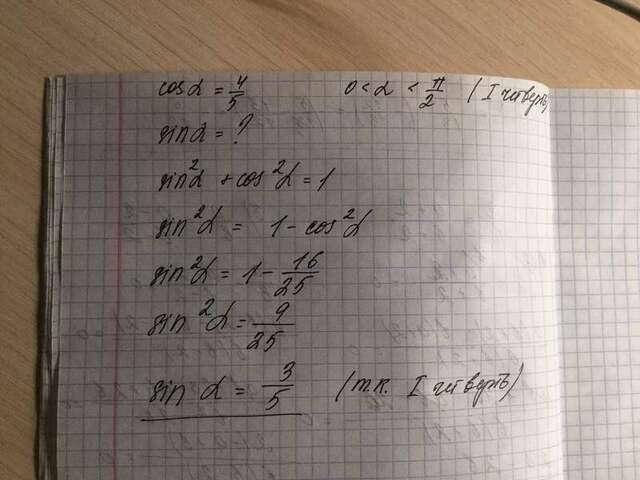 cos α = 4/5 0 < α < π/2 (I четверть)
sin α = ?
sin²α + cos²α = 1
sin²α = 1 - cos²α
sin²α = 1 - 16/25
sin²α = 9/25
sin α = 3/5 (т.к. I четверть)